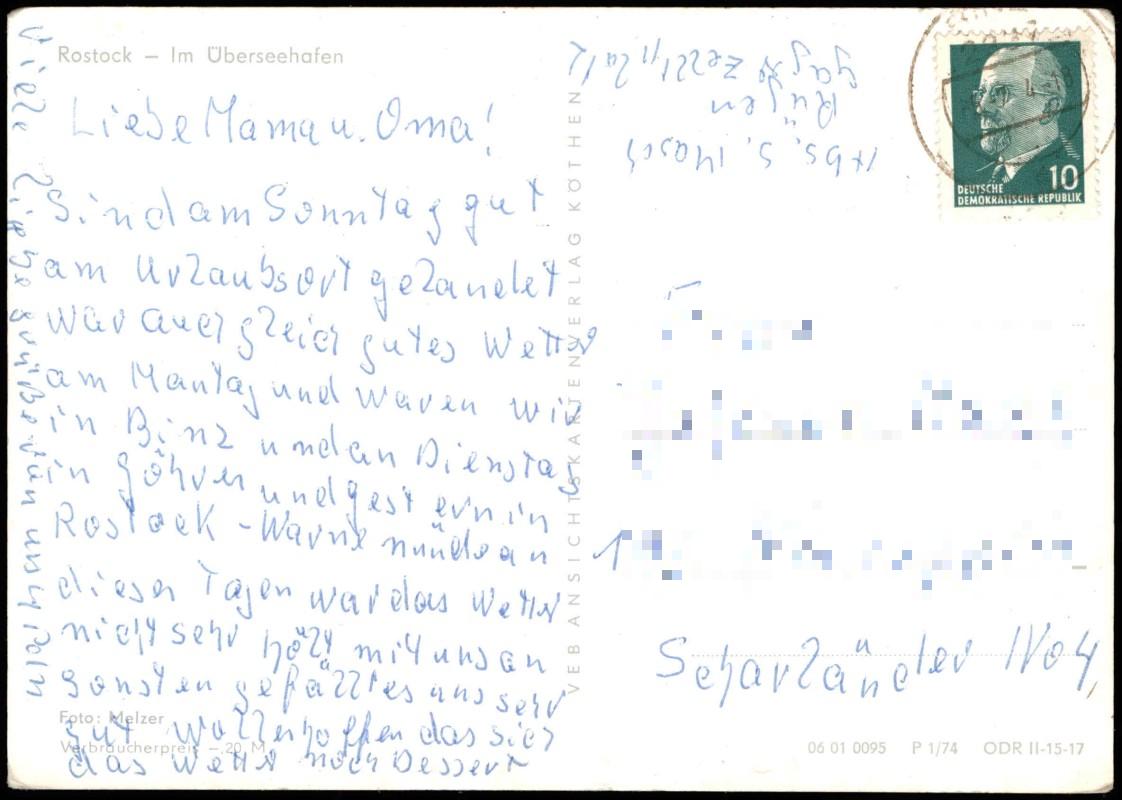 Rostock – Im Überseehafen
Liebe Mama u. Oma!
Sind am Sonntag gut
am Urlaubsort gelandet
war auch gleich gutes Wetter
am Mantag und waren wir
in Binz und an Dienstag
in Göhren und gestern in
Rostock - Warnemünde an
diesen Tagen war das Wetter
nicht sehr hält mit uns an
sonsten gefällt es uns sehr
gut wollen hoffen das sich
das Wetter noch bessert
Viele liebe Grüße von uns
Foto: Melzer
Verbraucherpreis –,20 M
VEB ANSICHTSKARTENVERLAG KÖTHEN
Rügen
DEUTSCHE
DEMOKRATISCHE REPUBLIK
10
Scharländer No 4
06 01 0095 P 1/74 ODR II-15-17